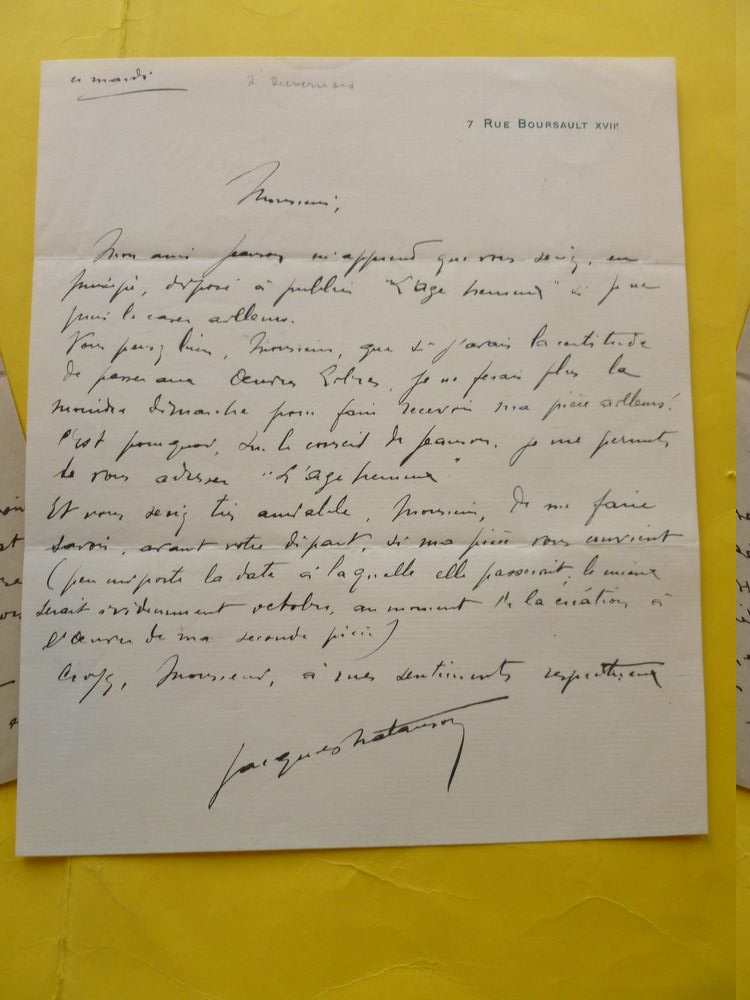 ce mardi
à Duvernois
7 RUE BOURSAULT XVIIe
Monsieur,
Mon ami Jeanson m'apprend que vous seriez, en
principe, disposé à publier "L'âge heureux" si je ne
puis le caser ailleurs.
Vous pensez bien, Monsieur, que si j'avais la certitude
de passer aux Œuvres Libres, je ne ferais plus la
moindre démarche pour faire recevoir ma pièce ailleurs!
C'est pourquoi, sur le conseil de Jeanson, je me permets
de vous adresser "L'âge heureux"
Et vous seriez très aimable, Monsieur, de me faire
savoir, avant votre départ, si ma pièce vous convient
(peu importe la date à laquelle elle passerait, le mieux
serait évidemment octobre, au moment de la création à
l'Œuvre de ma seconde pièce)
Croyez, Monsieur, à mes sentiments respectueux
Jacques Natanson